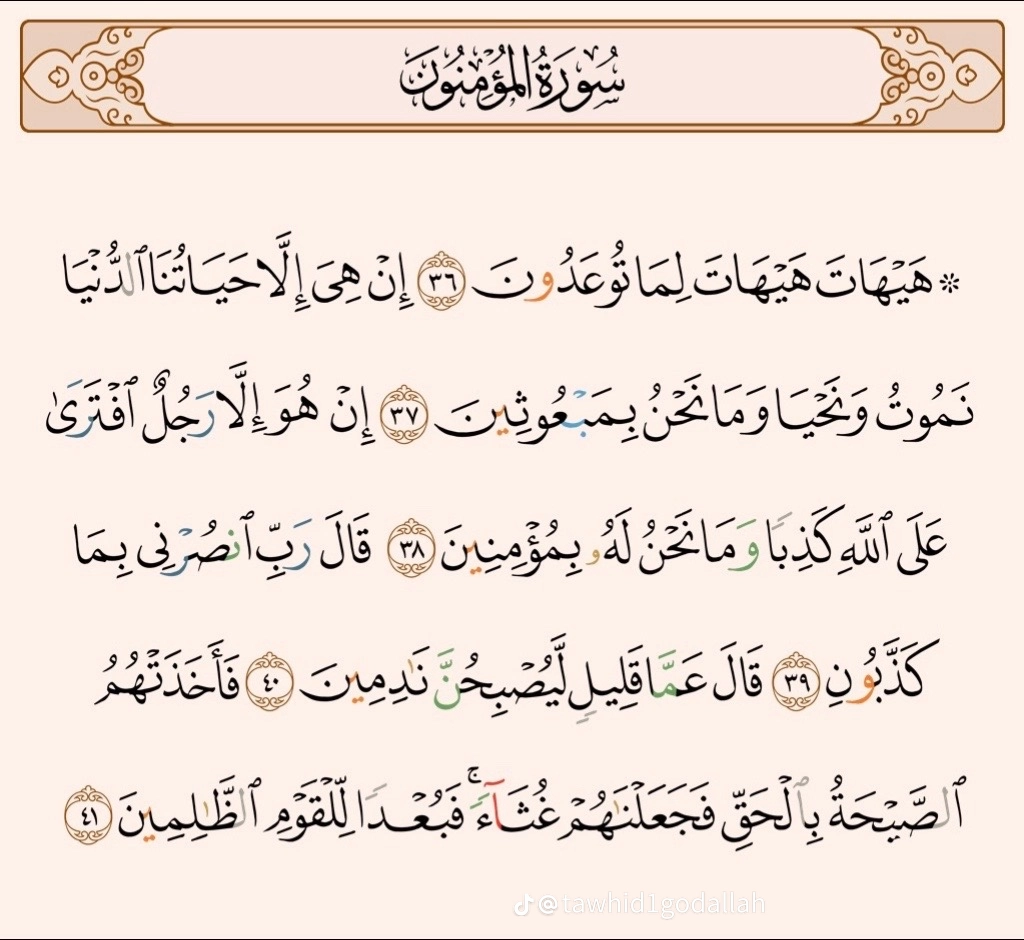 سُورَةُ المُؤۡمِنُونَ
۞ هَيۡهَاتَ هَيۡهَاتَ لِمَا تُوعَدُونَ ٣٦ إِنۡ هِيَ إِلَّا حَيَاتُنَا ٱلدُّنۡيَا
نَمُوتُ وَنَحۡيَا وَمَا نَحۡنُ بِمَبۡعُوثِينَ ٣٧ إِنۡ هُوَ إِلَّا رَجُلٌ ٱفۡتَرَىٰ
عَلَى ٱللَّهِ كَذِبٗا وَمَا نَحۡنُ لَهُۥ بِمُؤۡمِنِينَ ٣٨ قَالَ رَبِّ ٱنصُرۡنِي بِمَا
كَذَّبُونِ ٣٩ قَالَ عَمَّا قَلِيلٖ لَّيُصۡبِحُنَّ نَٰدِمِينَ ٤٠ فَأَخَذَتۡهُمُ
ٱلصَّيۡحَةُ بِٱلۡحَقِّ فَجَعَلۡنَٰهُمۡ غُثَآءٗۚ فَبُعۡدٗا لِّلۡقَوۡمِ ٱلظَّٰلِمِينَ ٤١
@tawhid1godallah